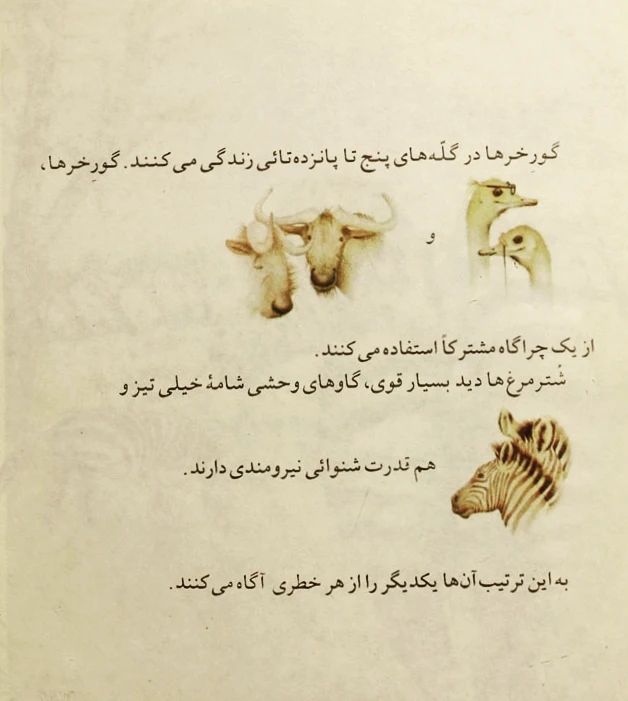 گورِخرها در گلّه‌های پنج تا پانزده‌تائی زندگی می‌کنند. گورِخرها،
و
از یک چراگاه مشترکاً استفاده می‌کنند.
شُترمرغ‌ها دید بسیار قوی، گاوهای وحشی شامهٔ خیلی تیز و
هم قدرت شنوائی نیرومندی دارند.
به این ترتیب آن‌ها یکدیگر را از هر خطری آگاه می‌کنند.